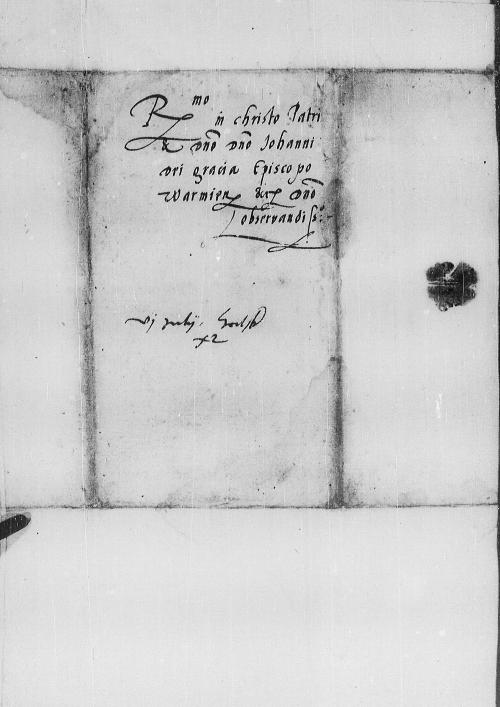 Rmo
in christo Patri
& dno dno Johanni
dei gracia Episcopo
Warmien &c dno
observandiss:
vj Julij